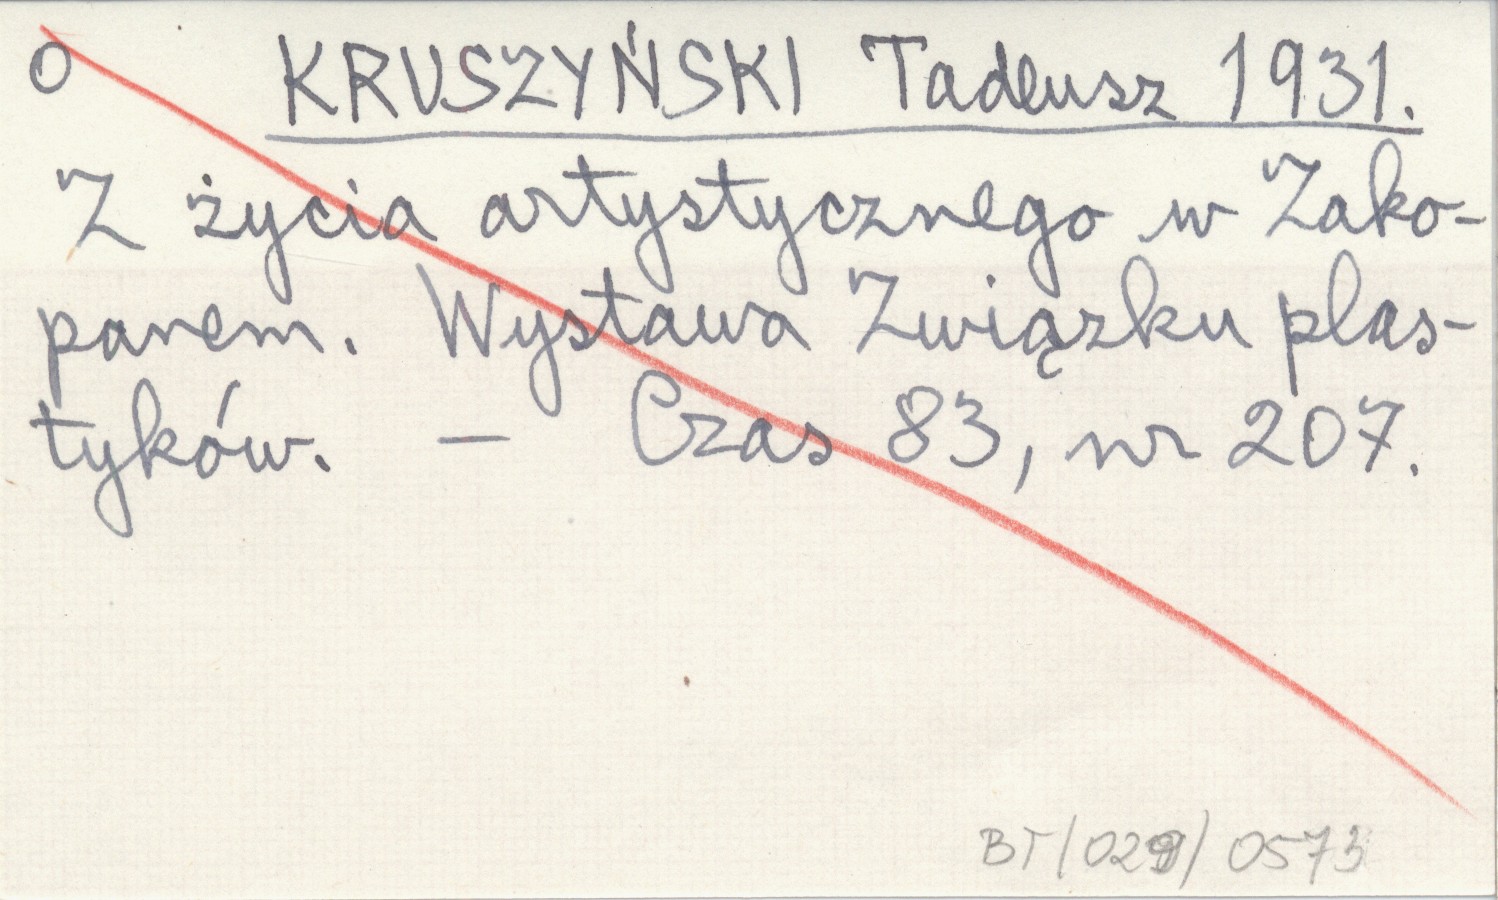 O KRUSZYŃSKI Tadeusz 1931.
Z życia artystycznego w Zako-
panem. Wystawa Związku plas-
tyków. — Czas 83, nr 207.
BT/029/0573